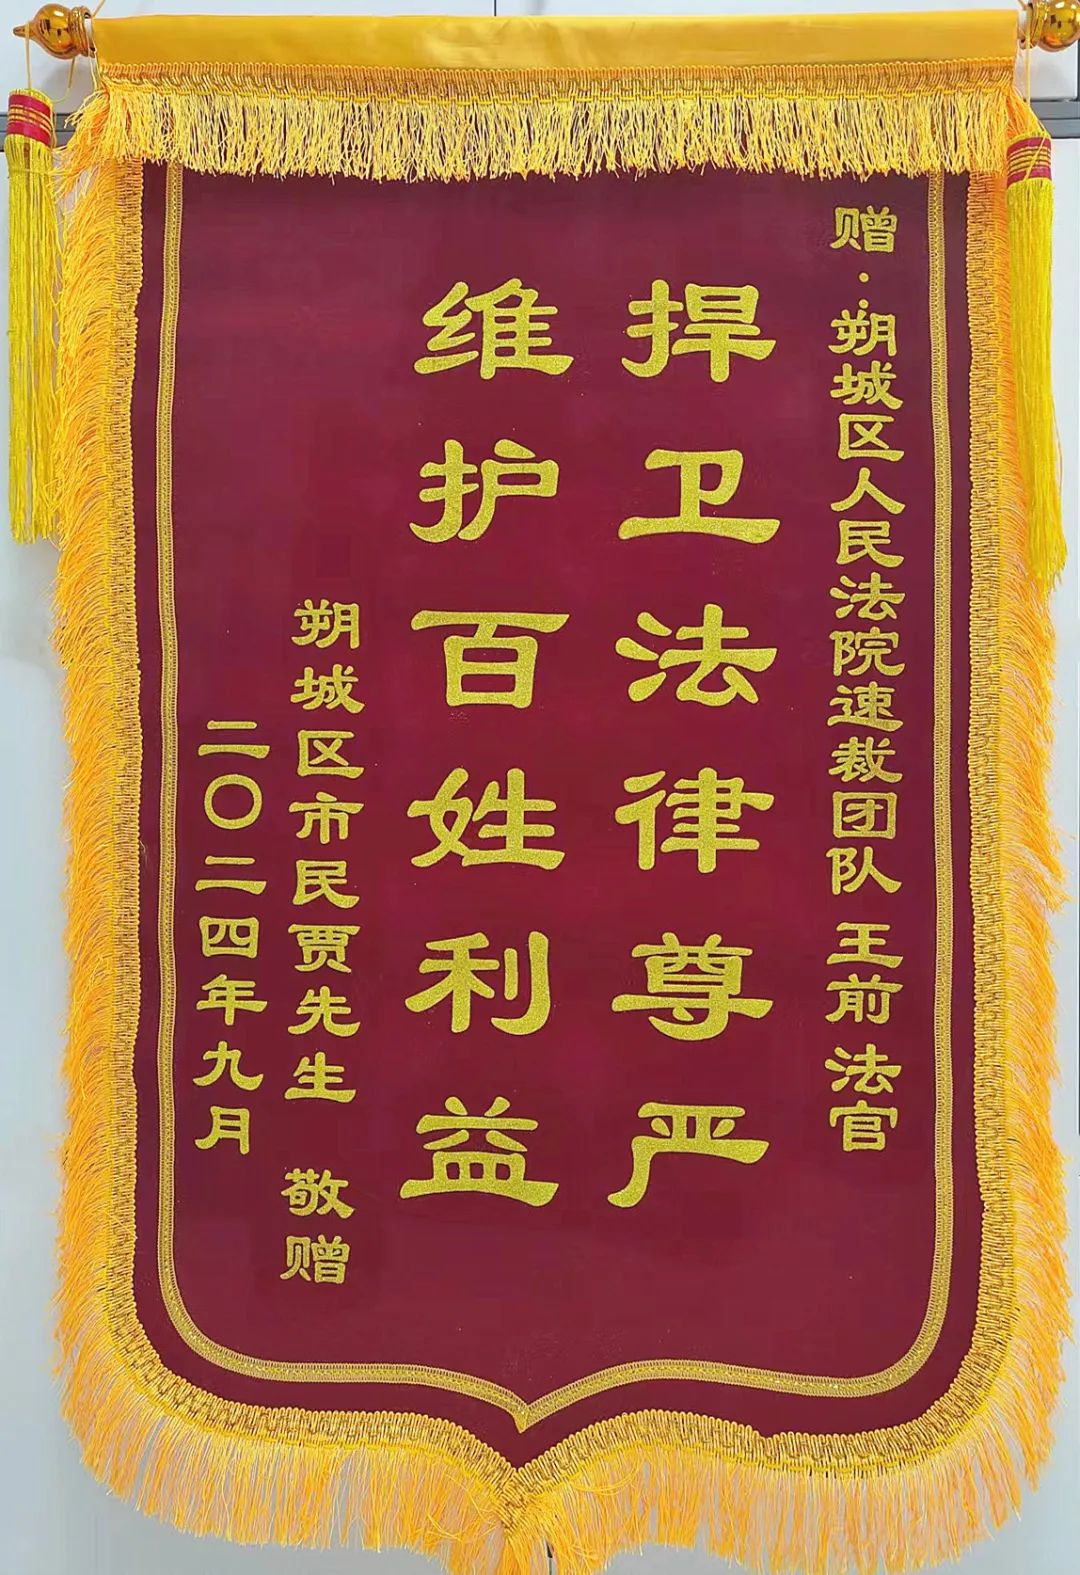 赠：朔城区人民法院速裁团队 王前 法官
捍卫法律尊严
维护百姓利益
朔城区市民贾先生 敬赠
二〇二四年九月